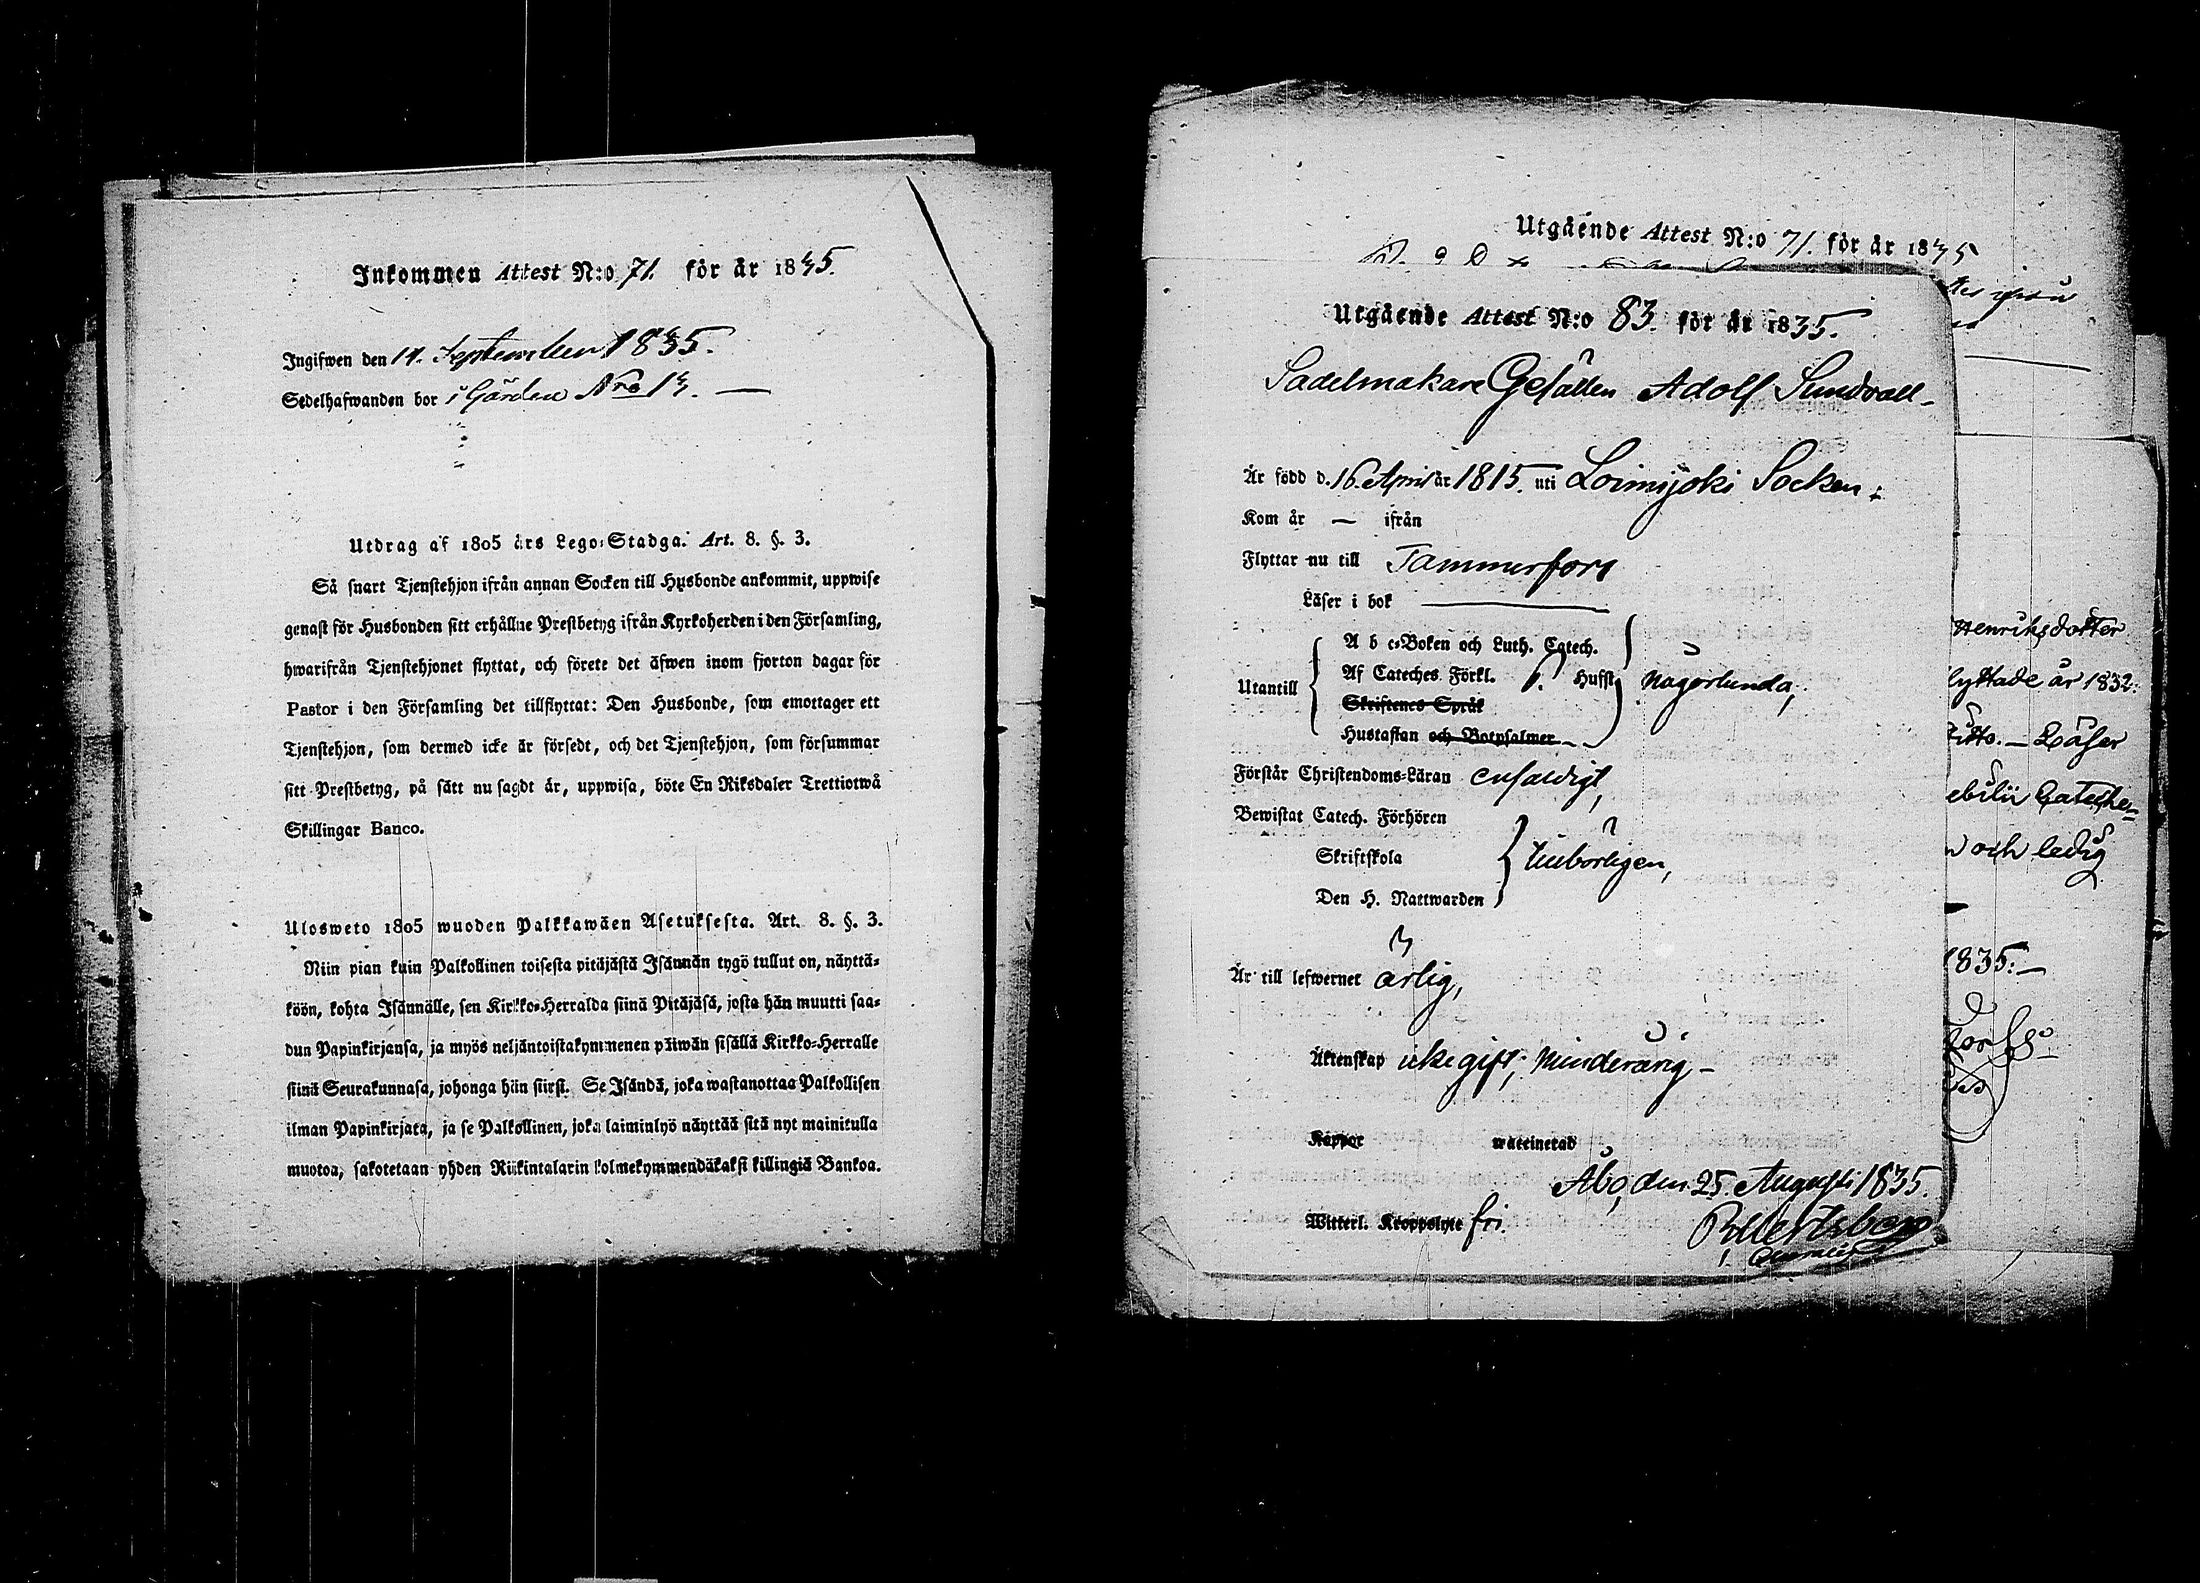 Inkommen Attest N:o 71. för år 1835.
Ingifwen den 14. September 1835.
Sedelhafwanden bor i Gården Nro 13. —
Utdrag af 1805 års Lego-Stadga. Art. 8. §. 3.
Så snart Tjenstehjon ifrån annan Socken till Husbonde ankommit, uppwise
genast för Husbonden sitt erhållne Prestbetyg ifrån Kyrkoherden i den Församling,
hwarifrån Tjenstehjonet flyttat, och förete det äfwen inom fjorton dagar för
Pastor i den Församling det tillflyttat: Den Husbonde, som emottager ett
Tjenstehjon, som dermed icke är försedt, och det Tjenstehjon, som försummar
sitt Prestbetyg, på sätt nu sagdt är, uppwisa, böte En Riksdaler Trettiotwå
Skillingar Banco.
Ulosweto 1805 wuoden Palkkawäen Asetuksesta. Art. 8. §. 3.
Niin pian kuin Palkollinen toisesta pitäjästä Isännän tygö tullut on, näyttä-
köön, kohta Isännälle, sen Kirkko-Herralda siinä Pitäjäsä, josta hän muutti saa-
dun Papinkirjansa, ja myös neljäntoistakymmenen päiwän sisällä Kirkko-Herralle
siinä Seurakunnasa, johonga hän siirsi. Se Isändä, joka wastanottaa Palkollisen
ilman Papinkirjata, ja se Palkollinen, joka laiminlyö näyttää sitä nyt mainitulla
muotoa, sakotetaan yhden Riikintalarin kolmekymmendäkaksi killingiä Bankoa.
Utgående Attest N:o 71. för år 1835
Utgående Attest N:o 83. för år 1835.
Sadelmakare Gesällen Adolf Sundvall
Är född d. 16 April år 1815. uti Loimijoki Socken;
Kom år — ifrån
Flyttar nu till Tammerfors
Läser i bok —
A b c-Boken och Luth. Catech.
Utantill Af Cateches Förkl. Husst någorlunda,
Skriftenes Språk
Hustaflan och Botpsalmer
Förstår Christendoms-Läran enfaldigt,
Bewistat Catech. Förhören
Skriftskola tillbörligen,
Den H. Nattwarden
Är till lefwernet ärlig,
Äktenskap icke gift, minderårig –
Koppor waccinerad
Åbo, den 25. Augusti 1835.
Witterl. Kroppslyte fri.
Henriksdotter
lyttade år 1832.
— Läser
Cateche-
och ledig
1835. —